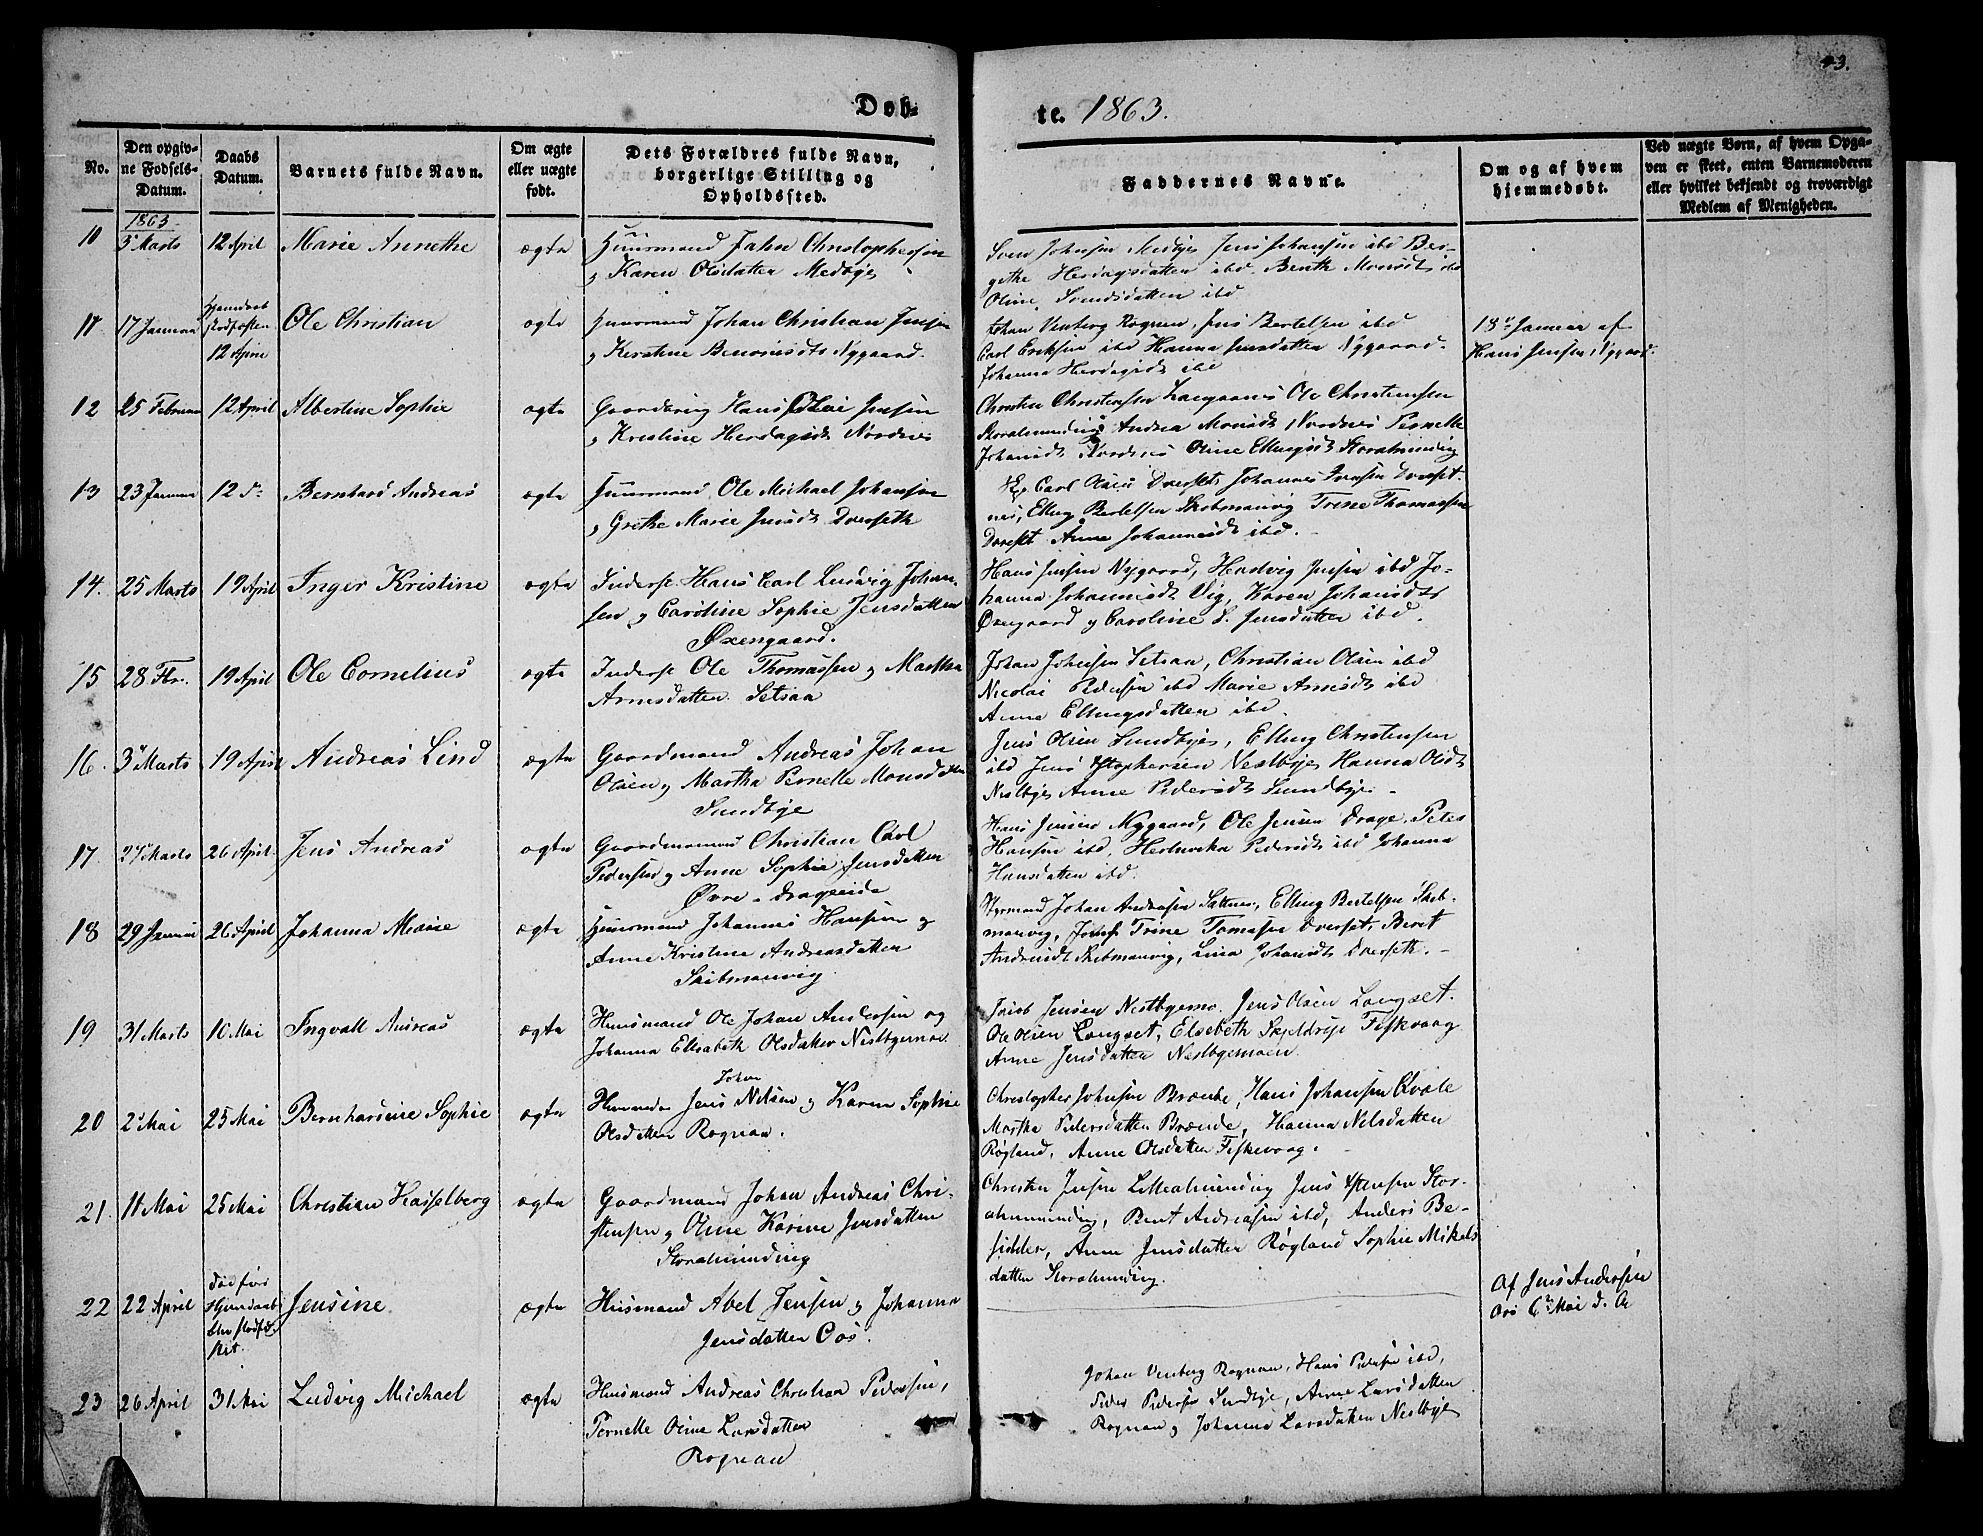 43.
Døb-
te. 1863.
No.
Den opgiv-
ne Fødsels-
Datum.
Daabs
Datum.
Barnets fulde Navn.
Om ægte
eller uægte
født.
Dets Forældres fulde Navn,
borgerlige Stilling og
Opholdssted.
Faddernes Navne.
Om og af hvem
hjemmedøbt.
Ved uægte Børn, af hvem Opga-
ven er skeet, enten Barnemoderen
eller hvilket bekjendt og troværdigt
Medlem af Menigheden.
1863
10 5 Marts 12 April Marie Annethe ægte Huusmand Jahn Christophersen
og Karen Olsdatter Medbye
Sven Johnsen Medbye Jens Johansen ibd Ber-
gethe Herdagsdatter ibd. Benth Monsdt ibd
Oline Svendsdatter ibd
11 17 Januar Hjemdøb stadfæsten 12 April Ole Christian ægte Huusmand Johan Christian Jensen
og Kerstine Benonisdtr Nygaard.
Johan Venberg Rognan, Jens Bertelsen ibd
Carl Eriksen ibd Hanna Jensdatter Nygaard.
Johanna Herdagsdt ibd
18de Januar af
Hans Jensen Nygaard.
12 25 Februar 12 April Albertine Sophie ægte Gaardbrug Hans Olai Jensen
og Krestine Herdagsdt Nordnes
Christen Christensen Langaanes Ole Christensen
Storalmending Andrea Monsdt Nordnes Pernelle
Johansdt Nordnes Oline Ellingsdt Storalmending
13 23 Januar 12 do Bernhard Andreas ægte Huusmand Ole Michael Johansen
og Grethe Marie Jensdt Dverseth
Carl Olsen Dverset, Johannes Iversen Dverset-
nes, Elling Bertelsen Skibmanvig Trine Thomassen
Dverset Anne Johannesdt ibd.
14. 25 Marts 19 April Inger Kristine ægte Inderst Hans Carl Ludvig Johan-
sen og Caroline Sophie Jensdatter
Øxengaard.
Hans Jensen Nygaard, Hedvig Jensen ibd Jo-
hanna Johannesdt Vig, Karen Johansdtr
Øxengaard og Caroline S. Jensdatter ibd.
15 28 Fbr. 19 April Ole Cornelius ægte Inderst Ole Thomassen og Martha
Arnesdatter Setsaa
Johan Johnsen Setsaa, Christian Olsen ibd
Nicolai Pedersen ibd Marie Arnesdt ibd
Anne Ellingsdatter ibd.
16. 3 Marts 19 April Andreas Lind ægte Gaardmand Andreas Johan
Olsen og Martha Pernelle Monsdatter
Sundbye
Jens Olsen Sundbye, Elling Christensen
ibd Jens Xstophersen Nestbye Hanna Olsdt
Nestbye Anne Pedersdt Sundbye.
17. 27 Marts 26 April Jens Andreas ægte Gaardmand Christian Carl
Pedersen og Anne Sophie Jensdatter
Øvre-Drageide
Hans Jensen Nygaard, Ole Jensen Drage Peter
Hansen ibd, Hedevika Pedersdt ibd Johanna
Hansdatter ibd.
18 29 Januar 26 April Johanna Marie ægte Huusmand Johannes Hansen og
Anne Kristine Andreasdatter
Skibmanvig.
Styrmand Johan Andersen Saltnes, Elling Bertelsen Skib-
manvig, Trine Tomasse Dverset, Beret
Andreasdt Skibmanvig, Lina Johansdt Dverseth.
19 31 Marts 10 Mai Ingvall Andreas ægte Huusmand Ole Johan Andersen og
Johanna Ellisabeth Olsdatter Nestbyemoe
Jakob Jensen Nestbyemo, Jens Olsen Langset.
Ole Olsen Langset, Elsebeth Skjeldrup Fiskevaag
Anne Jensdatter Nestbyemoen.
20 2 Mai 25 Mai Bernhardine Sophie ægte Huusmand Jens Johan Nilsen og Karen Sophie
Olsdatter Rognan.
Christopher Johnsen Brænde, Hans Johansen Qvale
Martha Pedersdatter Brænde, Hanna Nelsdatter
Røgland, Anne Olsdatter Fiskevaag.
21. 11 Mai 25 Mai Christian Hasselberg ægte Gaardmand Johan Andreas Chri-
stensen og Oline Karine Jensdatter
Storalmending
Christen Jensen Lillealmending Jens Xstensen Stor-
almending, Bent Andreasen ibd, Anders Be-
sidder, Anne Jensdatter Røgland Sophie Mikels
datter Storalmending.
22 22 April Død før Hjemdaab blev stadfæ- stet. Jensine ægte Husmand Abel Jensen og Johanna
Jensdatter Oos.
Af Jens Andersen
Oos 6te Mai d. A
23 26 April 31 Mai Ludvig Michael ægte Huusmand Andreas Christian Pedersen,
Pernelle Oline Larsdatter
Rognan
Johan Venberg Rognan, Hans Pedersen ibd,
Peder Pedersen Sundbye, Anne Larsdatter
Rognan og Johanna Larsdatter Nestbye